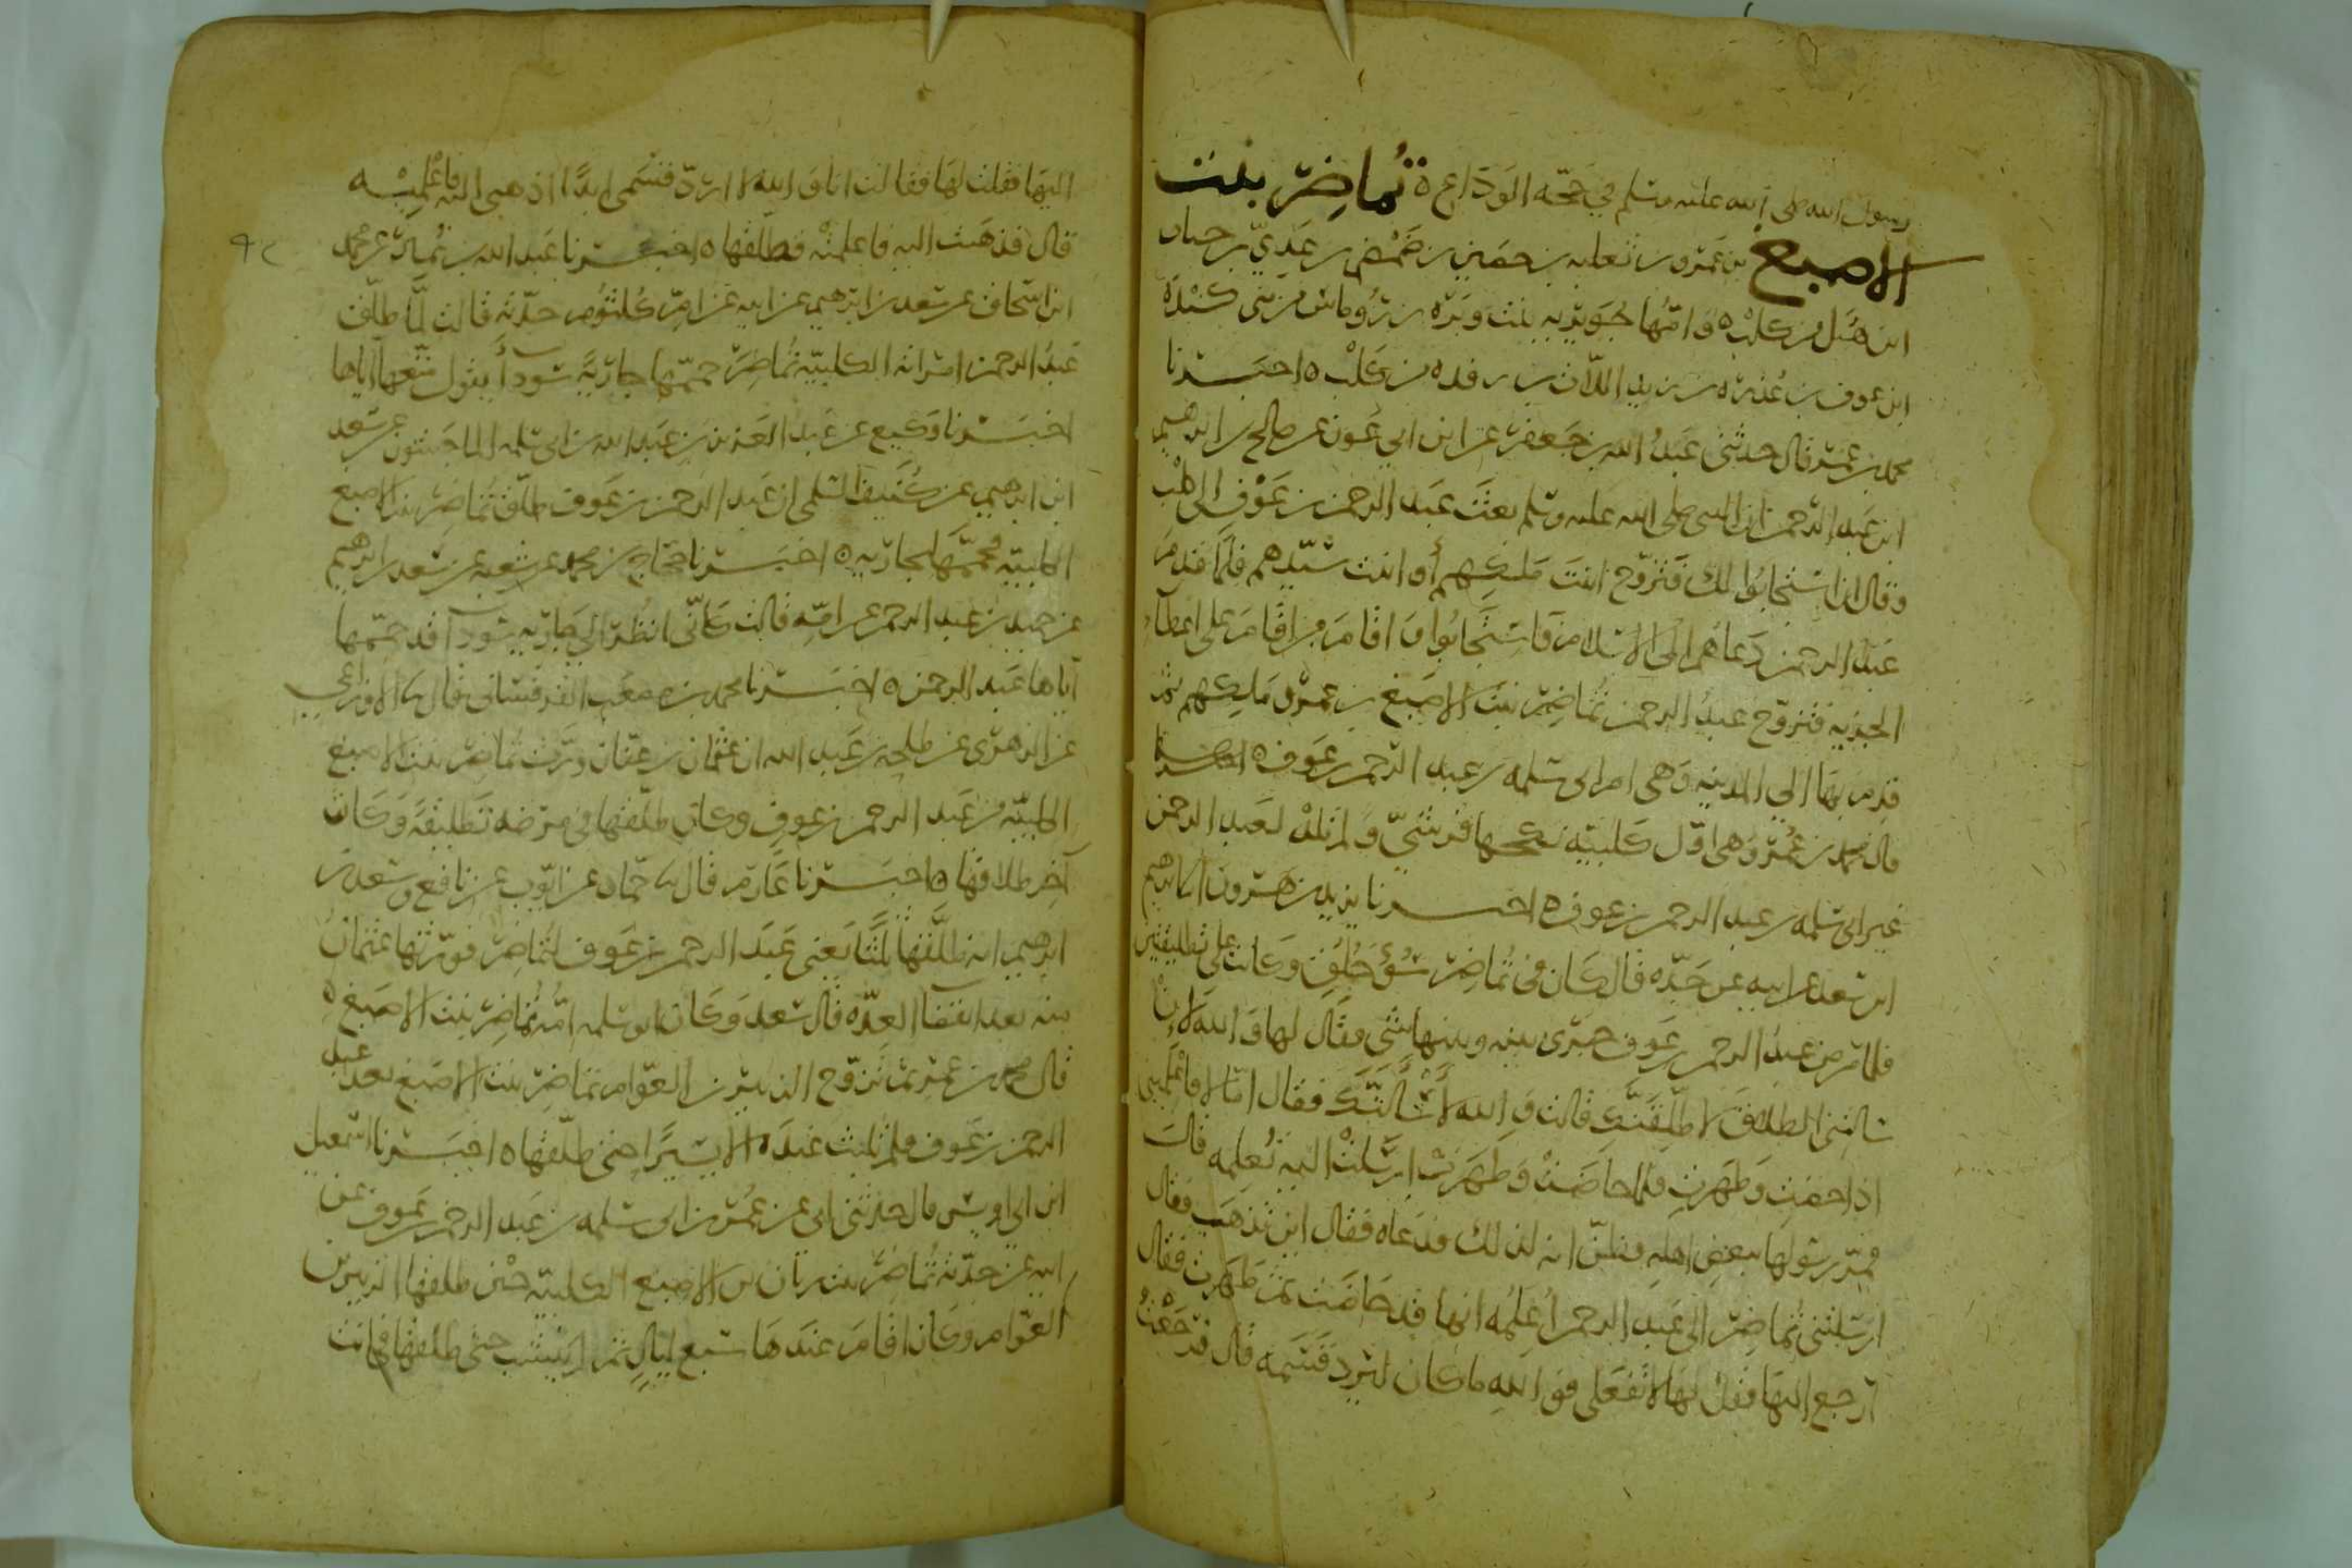 رسول الله صلى الله عليه وسلم في حجة الوداع ه تماضر بنت
الاصبغ بن عمرو بن ثعلبه بن حصين بن ضمضم بن عدي بن جناب
ابن هبل من كلب ه وامها جويريه بنت وبره بن رومانس من بني كنده
ابن عوف بن عذره بن زيد اللات بن رفيده بن كلب ه اخبرنا
محمد بن عمر قال حدثني عبد الله بن جعفر عن ابن ابي عون عن صالح بن ابرهيم
ابن عبد الرحمن ان النبي صلى الله عليه وسلم بعث عبد الرحمن بن عوف الى كلب
وقال ان استجابوا لك فتزوج ابنة مليكهم أو ابنت سيدهم فلما قدم
عبد الرحمن دعاهم الى الاسلام فاستجابوا واقام من اقام على اعطاء
الجزيه فتزوج عبد الرحمن تماضر بنت الاصبغ بن عمرو مليكهم ثم
قدم بها الى المدينه وهي ام ابي سلمه بن عبد الرحمن بن عوف ه اخبرنا
قال محمد بن عمر وهي اول كلبيه نكحها قرشي ولم تلد لعبد الرحمن
غير ابي سلمه بن عبد الرحمن بن عوف ه اخبرنا يزيد بن هرون انا ابرهيم
ابن سعد عن ابيه عن جده قال كان في تماضر سوء خلق وكانت على تطليقتين
فلما مرض عبد الرحمن بن عوف جرى بينه وبينها شي فقال لها والله لان
سالتني الطلاق لاطلقنك قالت والله لأسألنك فقال امّا لا فاعلميني
اذا حضت وطهرت فلما حاضت وطهرت ارسلت اليه تعلمه قال
فمر رسولها ببعض اهله فظن انه لذلك فدعاه فقال اين تذهب فقال
ارسلتني تماضر الى عبد الرحمن اعلمه انها قد حاضت ثم طهرت فقال
ارجع اليها فقل لها لا تفعلي فوالله ما كان ليرد قسمه قال فرجعت
اليها فقلت لها فقالت انا والله لا ارد قسمي ابدًا اذهبي اليه فاعلميه
قال فذهبت اليه فاعلمته فطلقها ه اخبرنا عبد الله بن نمير عن محمد
ابن اسحاق عن سعد بن ابرهيم عن ابيه عن ام كلثوم جدته قالت لما طلق
عبد الرحمن امراته الكلبيه تماضر حممها جارية سودأ يقول متعها اياها
اخبرنا وكيع عن عبد العزيز بن عبد الله بن ابي سلمه الماجشون عن سعد
ابن ابرهيم عن كنيف السلمي ان عبد الرحمن بن عوف طلق تماضر بنت الاصبغ
الكلبيه فحممها بجاريه ه اخبرنا حجاج بن محمد عن شعبه عن سعد بن ابرهيم
عن حميد بن عبد الرحمن عن امه قالت كاني انظر الى جاريه سودآ قد حممها
اياها عبد الرحمن ه اخبرنا محمد بن مصعب القرقساني قال نا الاوزاعي
عن الزهري عن طلحه بن عبد الله ان عثمان بن عفان ورث تماضر بنت الاصبغ
الكلبيه من عبد الرحمن بن عوف وكان طلقها في مرضه تطليقة وكانت
آخر طلاقها ه اخبرنا عارم قال نا حماد عن ايوب عن نافع وسعد بن
ابرهيم انه طلقها ثلثا يعني عبد الرحمن بن عوف لتماضر فورثها عثمان
منه بعد انقضا العده قال سعد وكان ابو سلمه امه تماضر بنت الاصبغ ه
قال محمد بن عمر ثم تزوج الزبير بن العوام تماضر بنت الاصبغ بعد عبد
الرحمن بن عوف فلم تلبث عنده الا يسيرًا حتى طلقها ه اخبرنا اسمعيل
ابن ابي اويس قال حدثني ابي عن عمر بن ابي سلمه بن عبد الرحمن بن عوف عن
ابيه عن جدته تماضر بنت زبان بن الاصبغ الكلبيه حين طلقها الزبير بن
العوام وكان اقام عندها سبع ليالٍ ثم لم ينشب حتى طلقها فكانت